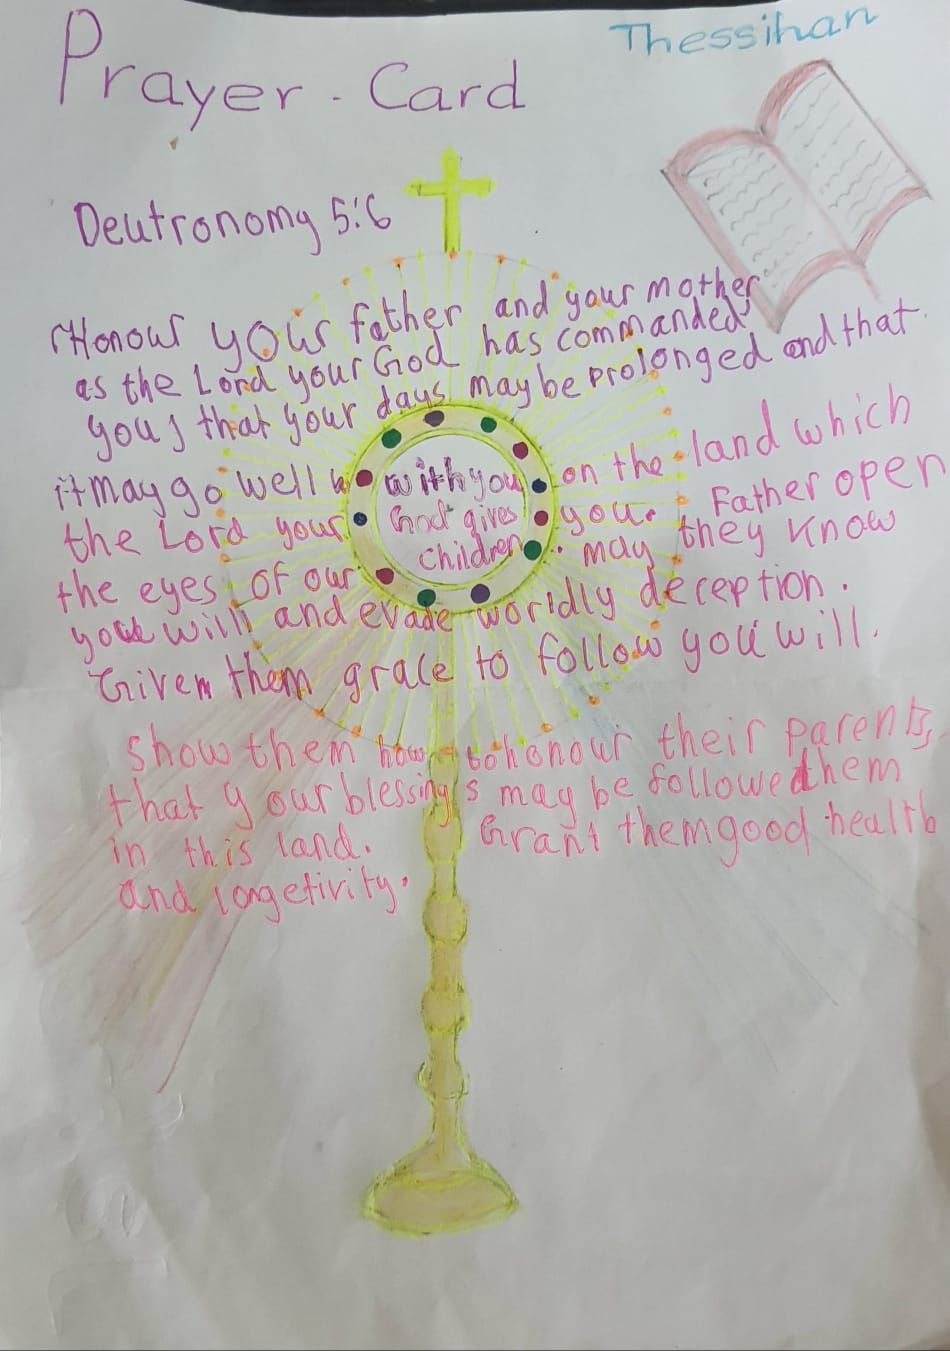 Thessihan
Prayer - Card
Deutronomy 5:6
Honour your father and your mother
as the Lord your God has commanded
you; that your days may be prolonged and that
it may go well with you on the land which
the Lord your God gives you. Father open
the eyes of our children. may they know
your will and evade worldly deception.
Given them grace to follow you will.
Show them how to honour their parents,
that your blessings may be followed them
in this land. Grant them good health
and longetivity.